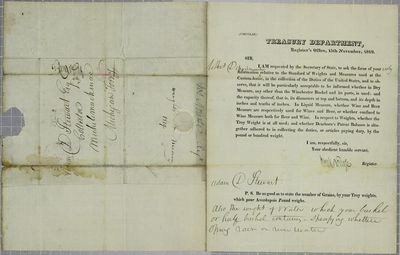 (CIRCULAR.)
TREASURY DEPARTMENT,
Register's Office, 15th November, 1819.
SIR,
I AM requested by the Secretary of State, to ask the favor of your
information relative to the Standard of Weights and Measures used at the
Custom-house, in the collection of the Duties of the United States, and to ob-
serve, that it will be particularly acceptable to be informed whether in Dry
Measure, any other than the Winchester Bushel and its parts are used: and
the capacity thereof, that is, its diameters at top and bottom, and its depth in
inches and tenths of inches. In Liquid Measure, whether Wine and Beer
Measure are respectively used for Wines and Beer, or whether confined to
Wine Measure both for Beer and Wine. In respect to Weights, whether the
Troy Weight is at all used; and whether Dearborn's Patent Balance is alto-
gether adhered to in collecting the duties, or articles paying duty, by the
pound or hundred weight.
I am, respectfully, sir,
Your obedient humble servant,
Register.
Adam D Steuart
P. S. Be so good as to state the number of Grains, by your Troy weights,
which your Avoirdupois Pound weighs.
Also the weight of Water which your bushel
or half bushel contains - specifying whether
Spring Rain or River Water
Adam D Steuart Esq
Collector
Michilimackinac
Michigan Terry